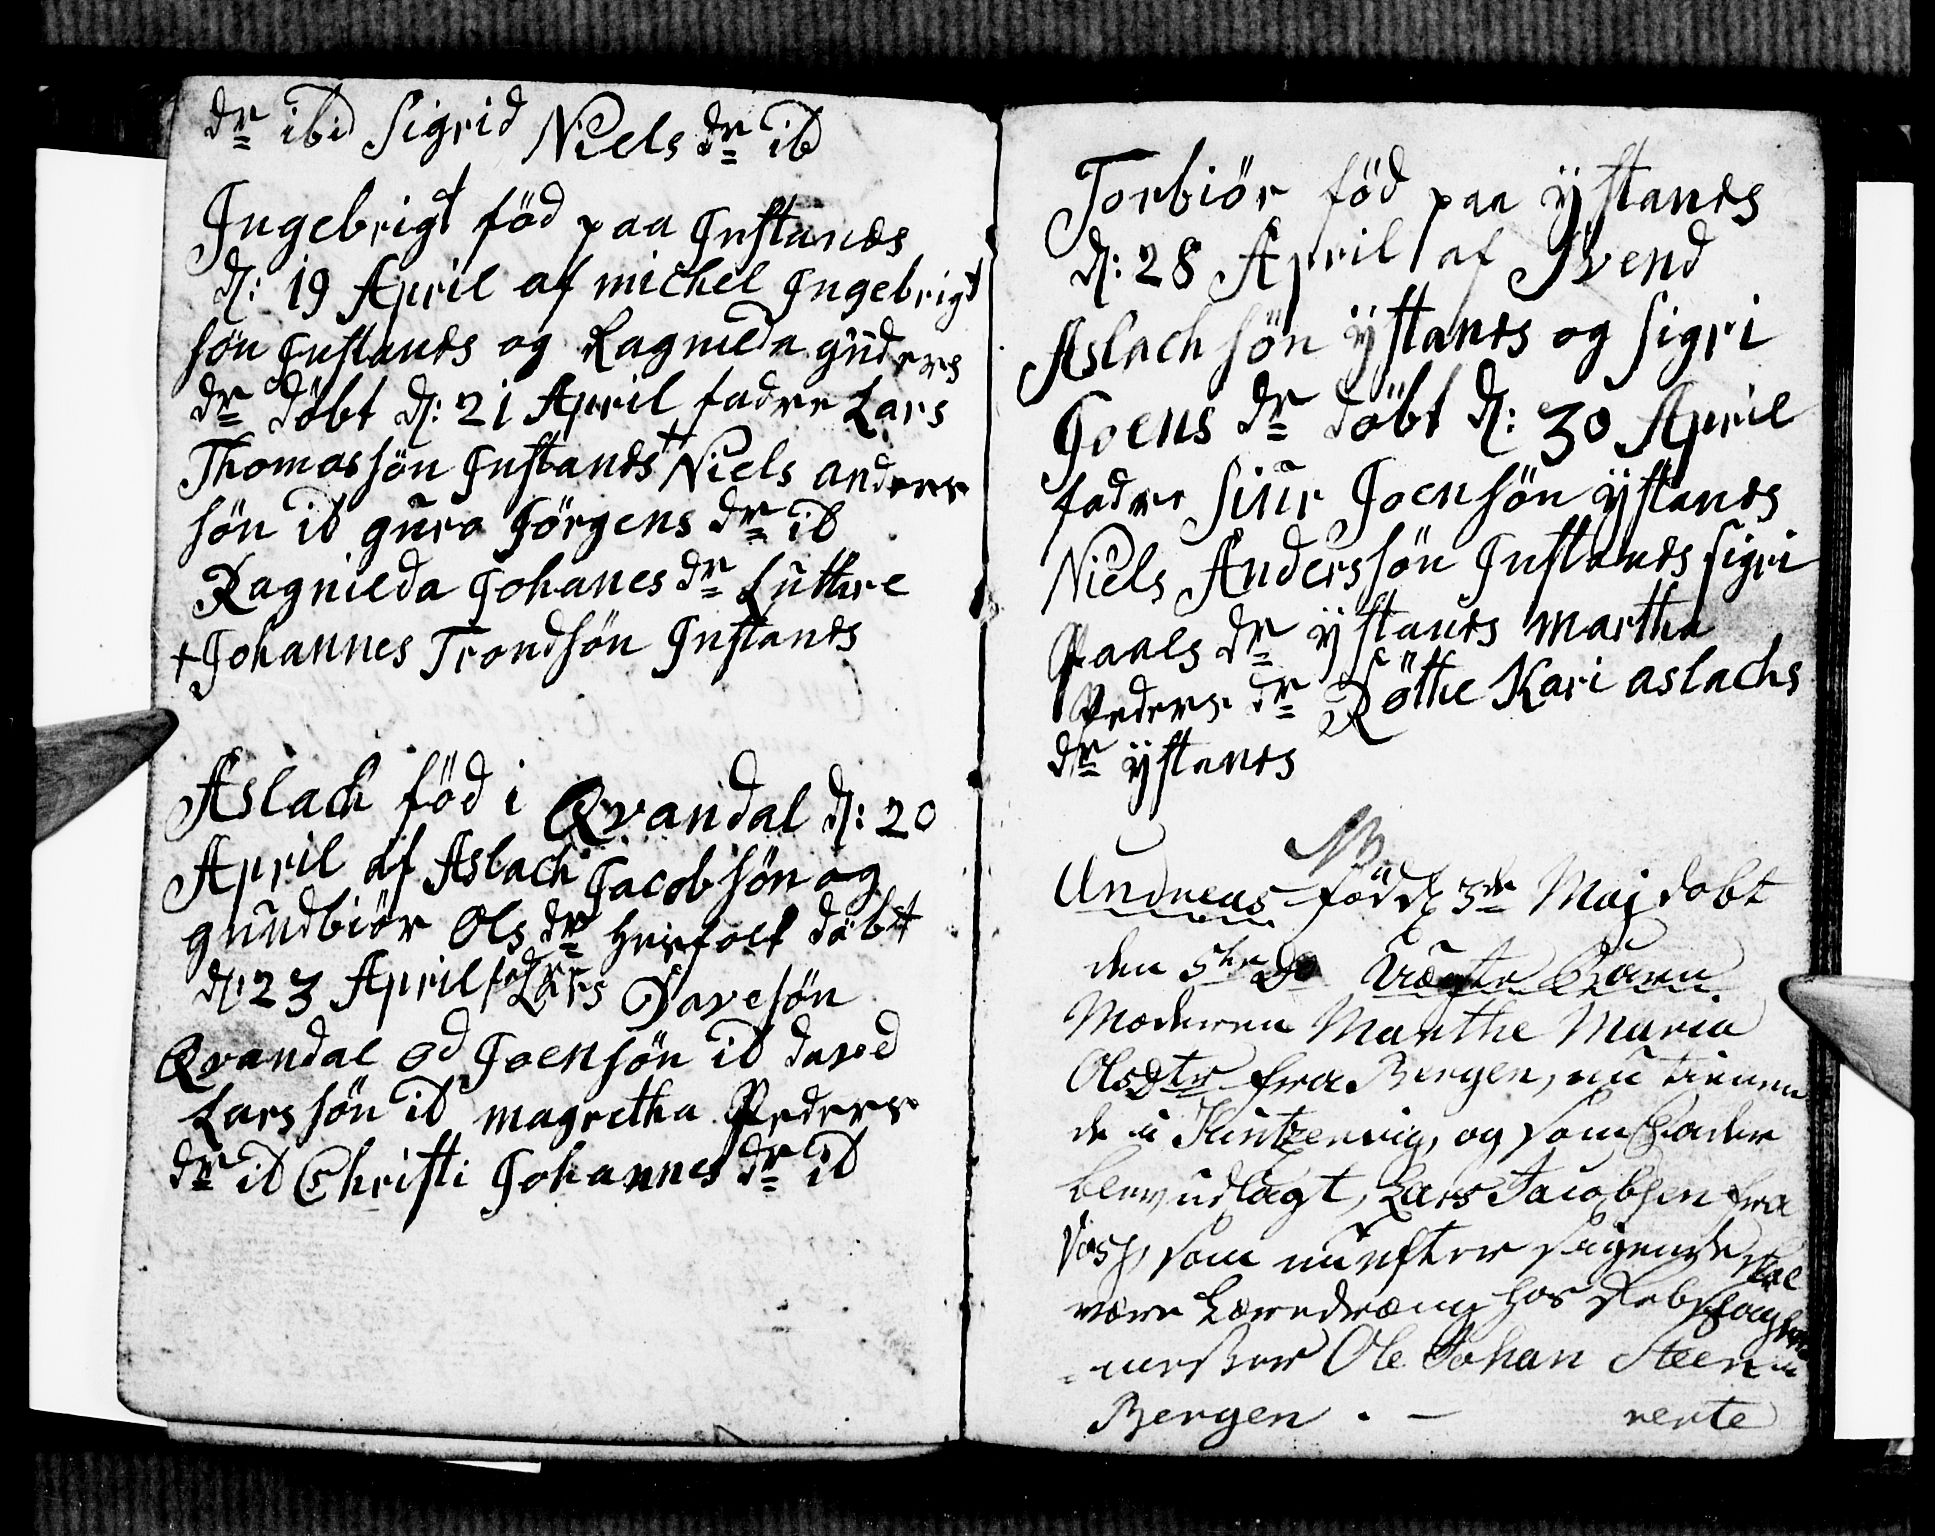 dr ibid Sigrid Niels dr ib
Ingebrigt föd paa Instands
d: 19 April af michel Ingebrigt
sön Instands og Ragnilda güders
dr döbt d: 21 April fadre Lars
Thomassön Instands Niels anders
sön ib gúro Jörgens dr ib
Ragnilda Johanes dr Lúthre
+ Johannes Trondsön Instands
Aslach föd i Qvandal d: 20
April af Aslach Jacobsön og
gúndbiör Ols dr döbt
d: 23 April fadre Lars Davesön
Qvandal od Joensön ib daved
Larssön ib magretha Peders
dr ib Christi Johannes dr ib
Torbiör föd paa ÿstands
d: 28 April af Svend
Aslachsön ÿstands og Sigri
Joens dr döbt d: 30 April
fadre Siúr Joensön ÿstands
Niels Anderssön Instands Sigri
Paals dr ÿstands martha
Peders dr Röthe Kari aslachs
dr ÿstands
NB
Andreas föd d 3de Maj dobt
den 5te do Uægte Barn
Moderen Marthe Maria
Olsdtr fra Bergen, nú tienen
de i Kintzervig, og som Fader
blev udlagt, Lars Jacobsen fra
Voss, som nú efter sigende skal
være Læredræng hos Rebslager
mester Ole Johan Steen i
Bergen . —